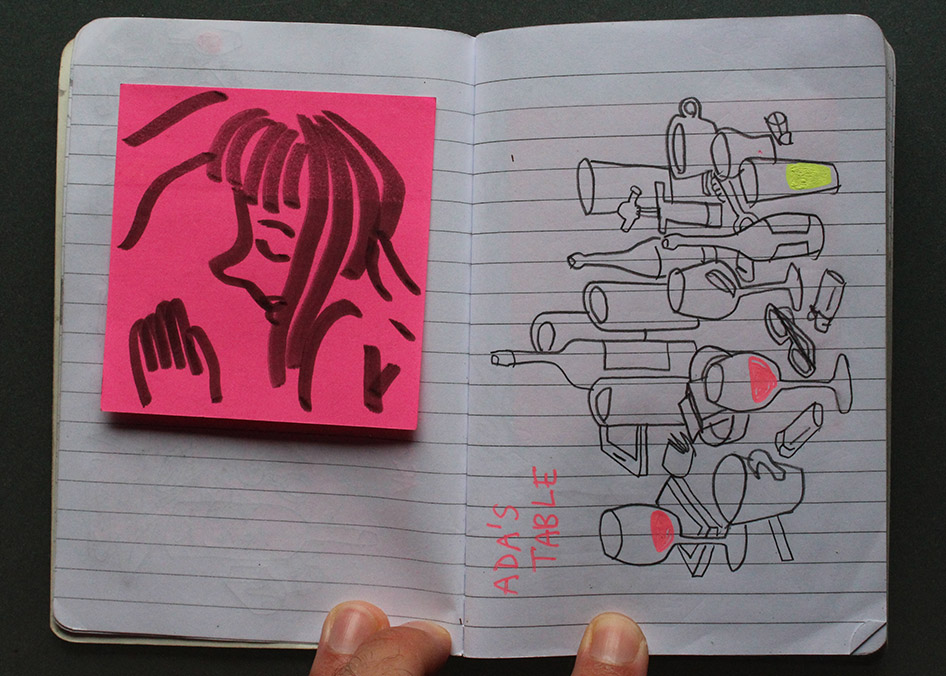 ADA'S
TABLE